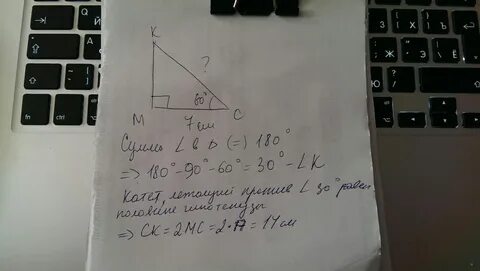 K
?
60°
M
C
7 см
Сумма ∠ в Δ (=) 180°
=> 180° - 90° - 60° = 30° - ∠K
Катет, лежащий против ∠ 30° равен
половине гипотенузы
=> CK = 2MC = 2·7 = 14 см